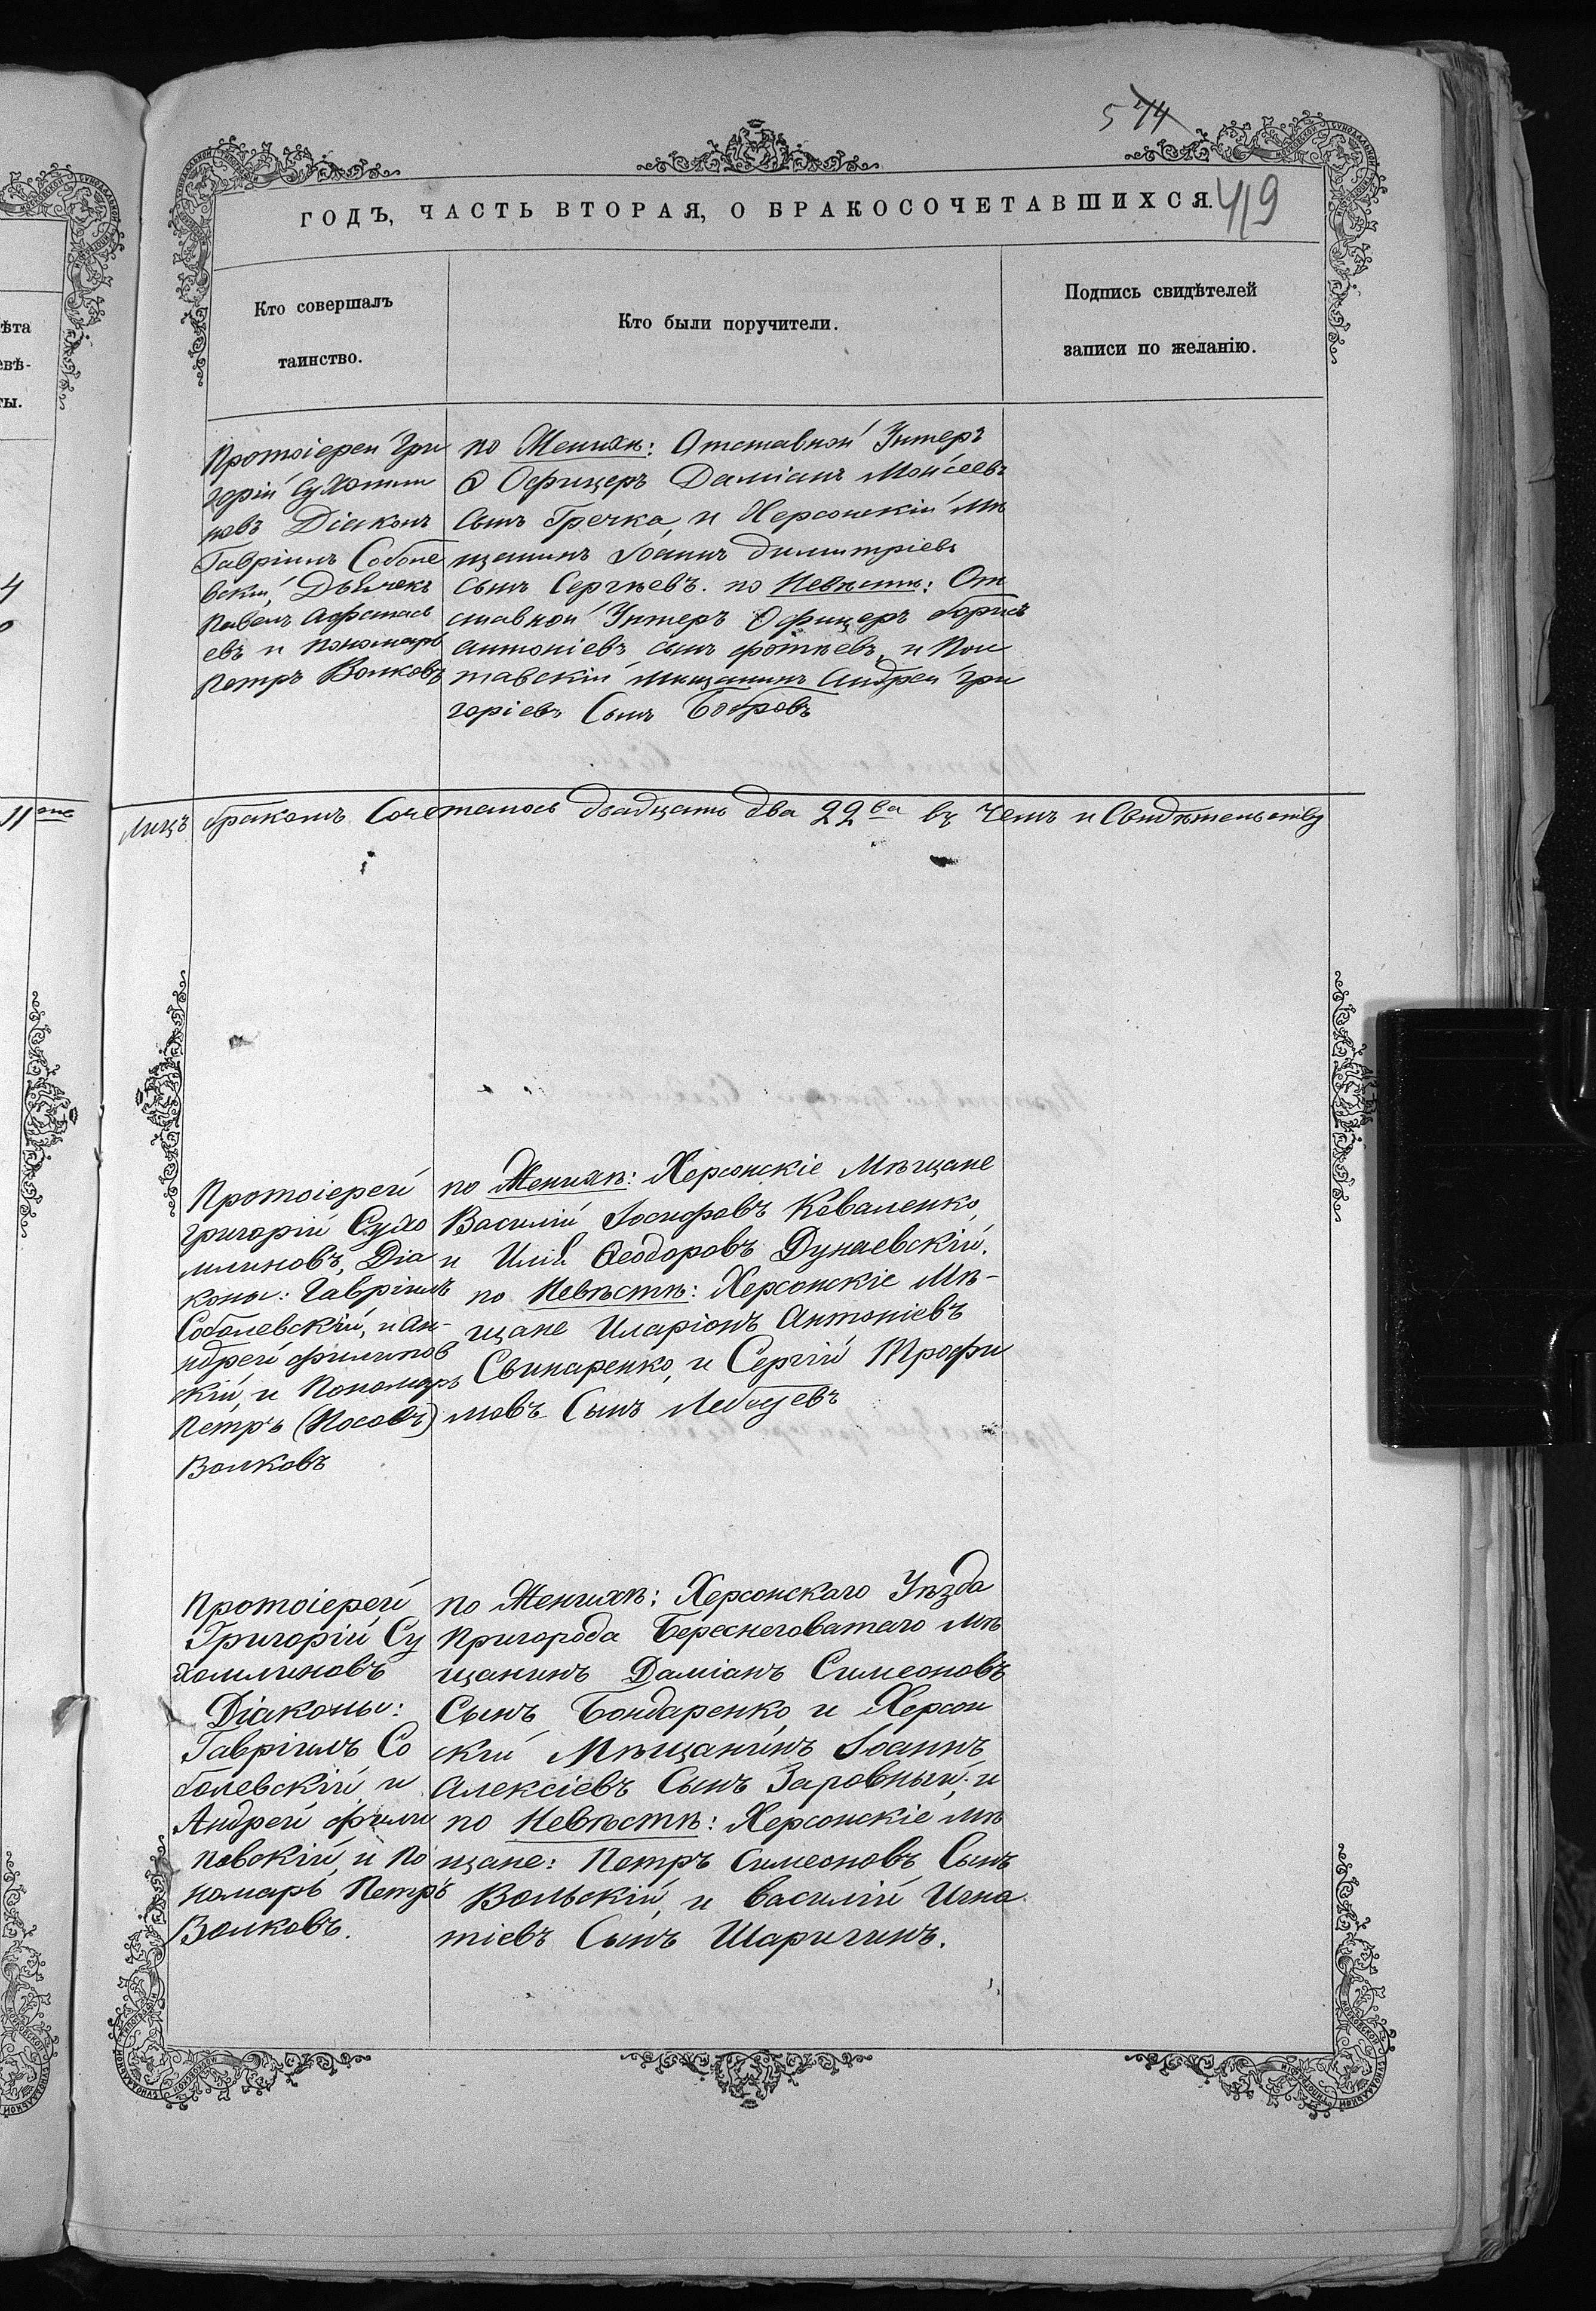 574
419
ГОДЪ, ЧАСТЬ ВТОРАЯ, О БРАКОСОЧЕТАВШИХСЯ.
Кто совершалъ
таинство.
Кто были поручители.
Подпись свидѣтелей
записи по желанію.
ѣта
евѣ-
ты.
Протоіерей Гри
горій Сухомли
новъ Діаконъ
Гавріилъ Соболе
вскій, Дьячекъ
Павелъ Афанась
евъ и Пономарь
Петръ Волковъ
по Женихѣ: Отставной Унтеръ
Офицеръ Даміанъ Моисеевъ
Сынъ Гречка, и Херсонскій Мѣ
щанинъ Іоаннъ Димитріевъ
Сынъ Сергѣевъ. по Невѣстѣ: От
ставной Унтеръ Офицеръ Борисъ
Антоніевъ сынъ Фотѣевъ, и Пол
тавскій Мѣщанинъ Андрей Гри
горіевъ Сынъ Бобровъ
4
11
Лицъ бракомъ Сочеталось двадцать два 22ва въ Чемъ и Свидѣтельству
Протоіерей
Григорій Сухо
млиновъ, Діа
коны: Гавріилъ
Соболевскій, и Ан-
дрей Филипов
скій, и Пономарь
Петръ (Носовъ)
Волковъ
по Женихѣ: Херсонскіе Мѣщане
Василій Іосифовъ Коваленко,
и Илія Ѳеодоровъ Дунаевскій.
по Невѣстѣ: Херсонскіе Мѣ-
щане Иларіонъ Антоніевъ
Свинаренко, и Сергій Трофи
мовъ Сынъ Лебедевъ
Протоіерей
Григорій Су
хомлиновъ
Діаконы:
Гавріилъ Со
болевскій, и
Андрей Фили
повскій, и По
номарь Петръ
Волковъ.
по Женихѣ: Херсонскаго Уѣзда
Пригорода Береснеговатаго Мѣ
щанинъ Даміанъ Симеоновъ
Сынъ Бондаренко, и Херсон
скій Мѣщанинъ Іоаннъ
Алексіевъ Сынъ Заровный; и
по Невѣстѣ: Херсонскіе Мѣ
щане: Петръ Симеоновъ Сынъ
Вольскій, и Василій Игна
тіевъ Сынъ Шаригинъ.